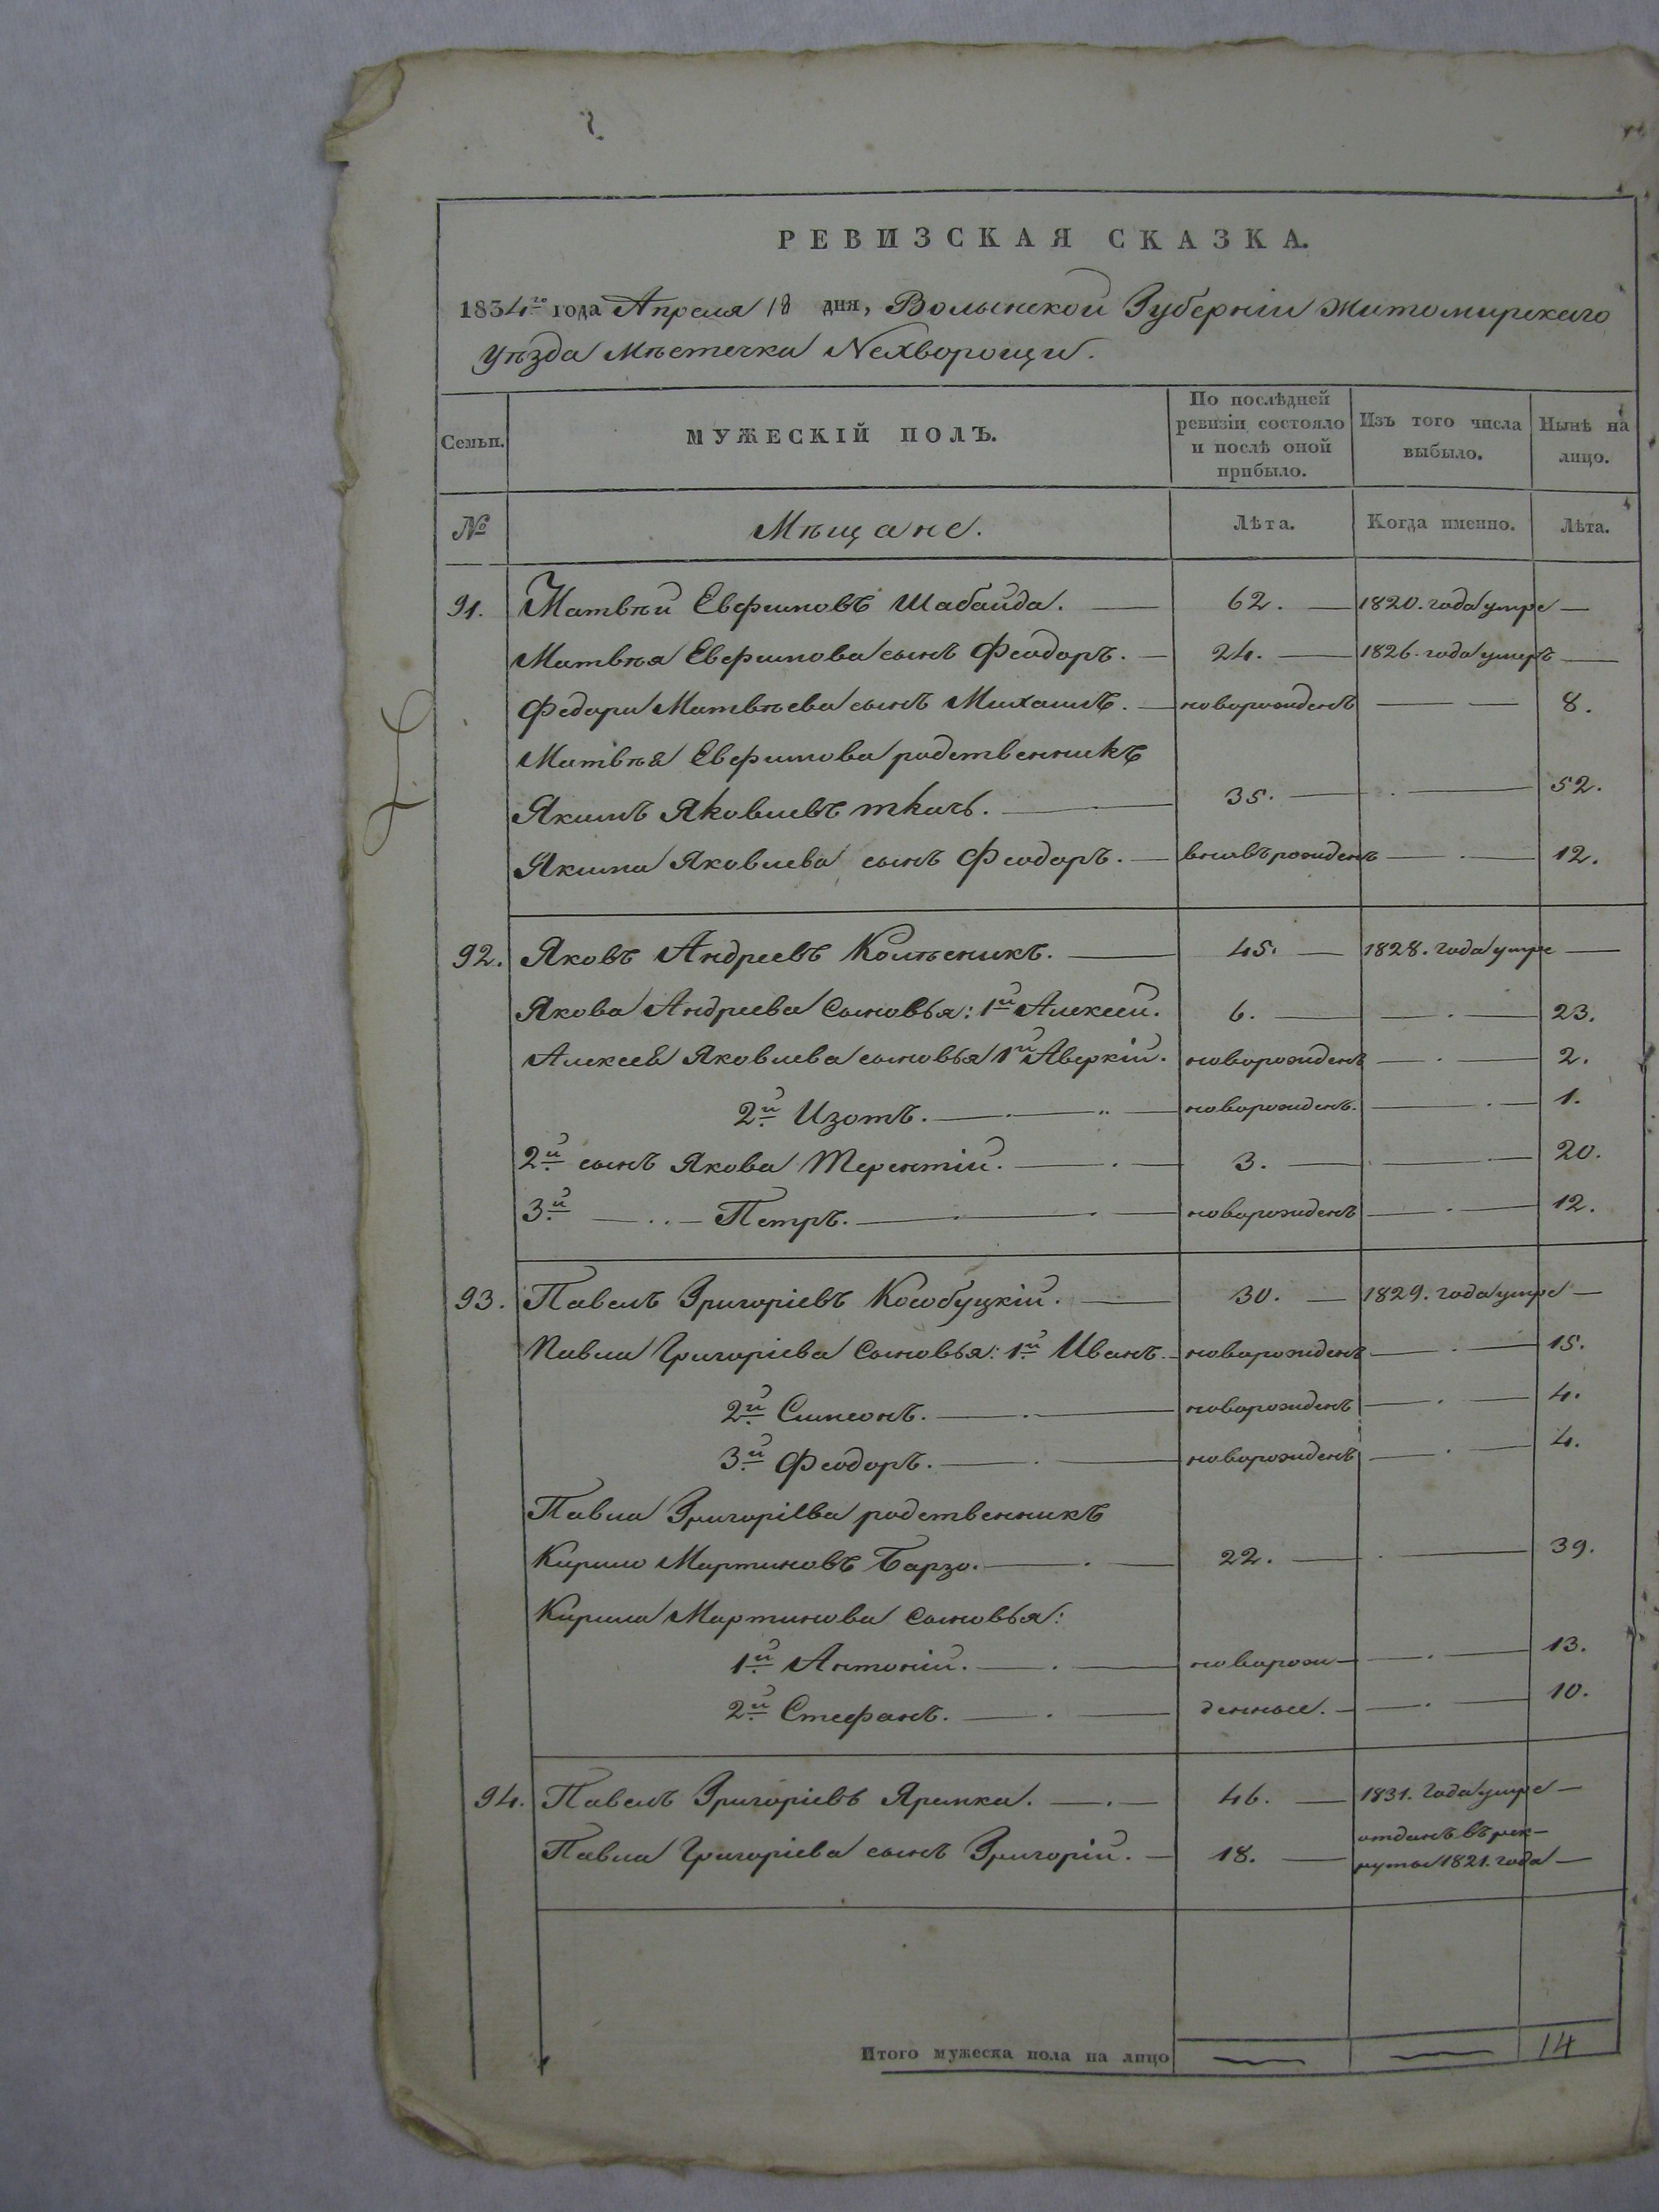 РЕВИЗСКАЯ СКАЗКА.
1834го года Апреля 18 дня, Волынской Губерніи Житомирскаго
уѣзда мѣстечка Нехворощи.
Семьи. МУЖЕСКІЙ ПОЛЪ. По послѣдней ревизіи состояло и послѣ оной прибыло. Изъ того числа выбыло. Нынѣ на лицо.
№ Мѣщане. Лѣта. Когда именно. Лѣта.
91. Матвѣй Евфимовъ Шабайда. — 62. — 1820. года умре —
Матвѣя Евфимова сынъ Феодоръ. — 24. — 1826. года умеръ —
Федора Матвѣева сынъ Михаилъ. — новорожденъ — 8.
Матвѣя Евфимова родственникъ
Якимъ Яковлевъ ткачъ. — 35. — 52.
Якима Яковлева сынъ Феодоръ. — вновьрожденъ — 12.
92. Яковъ Андреевъ Колѣсникъ. — 45. — 1828. года умре —
Якова Андреева сыновья: 1й Алексей. 6. — 23.
Алексея Яковлева сыновья 1й Аверкій. новорожденъ — 2.
2й Изотъ. — новорожденъ. — 1.
2й сынъ Якова Терентій. — 3. — 20.
3й — Петръ. — новорожденъ — 12.
93. Павелъ Григоріевъ Кособуцкій. — 30. — 1829. года умре —
Павла Григоріева сыновья: 1й Иванъ. новорожденъ — 15.
2й Симеонъ. — новорожденъ — 4.
3й Феодоръ. — новорожденъ — 4.
Павла Григоріева родственникъ
Кирило Мартиновъ Барзо. — 22. — 39.
Кирила Мартинова сыновья:
1й Антоній. — новорож- — 13.
2й Стефанъ. — денные. — 10.
94. Павелъ Григоріевъ Яремка. — 46. — 1831. года умре —
Павла Григоріева сынъ Григорій. — 18. — отданъ въ рек-
руты 1821. года —
Итого мужеска пола на лицо — — 14